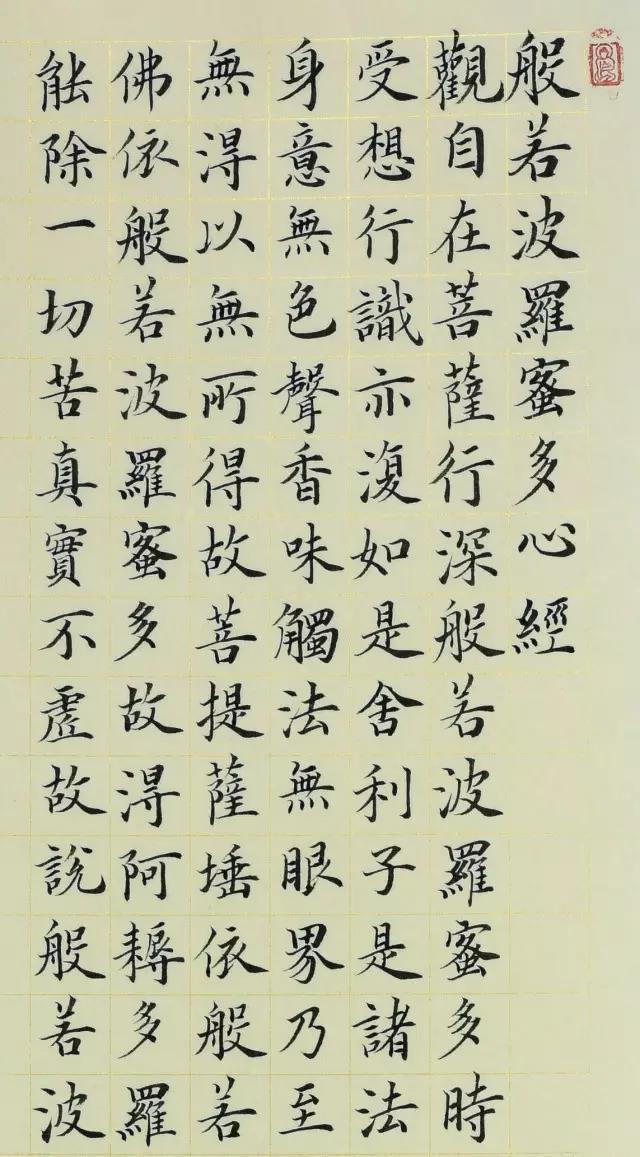 般若波羅蜜多心經
觀自在菩薩行深般若波羅蜜多時
受想行識亦復如是舍利子是諸法
身意無色聲香味觸法無眼界乃至
無得以無所得故菩提薩埵依般若
佛依般若波羅蜜多故得阿耨多羅
能除一切苦真實不虛故說般若波